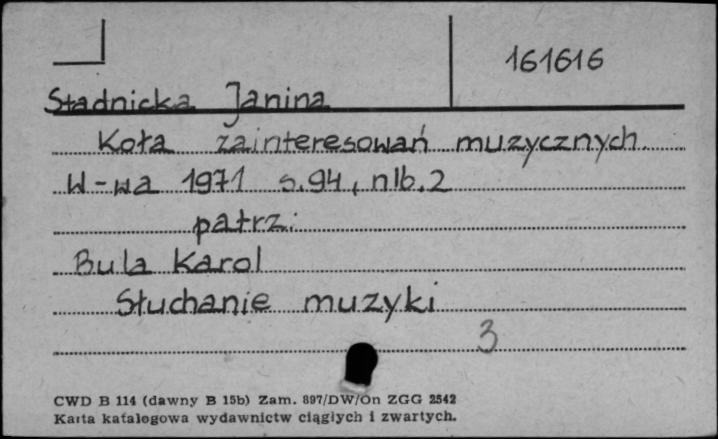 161616
Stadnicka Janina
Koła zainteresowań muzycznych
W-wa 1971 s.94, nlb.2
patrz:
Bula Karol
Słuchanie muzyki
3
CWD B 114 (dawny B 15b) Zam. 897/DW/On ZGG 2542
Karta katalogowa wydawnictw ciągłych i zwartych.